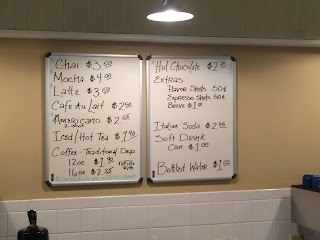 Chai $3.50
Mocha $4.00
Latte $3.50
Café Au Lait $2.50
Americano $2.00
2 shots
Iced/Hot Tea $1.90
Coffee - Traditional Drip
12 oz $1.90
16 oz $2.25
Hot Chocolate
Extras
Flavor Shots 50¢
Espresso Shots 50¢
Breve $1.00
Italian Soda
Soft Drink
Can $1.00
Bottled Water $1.50